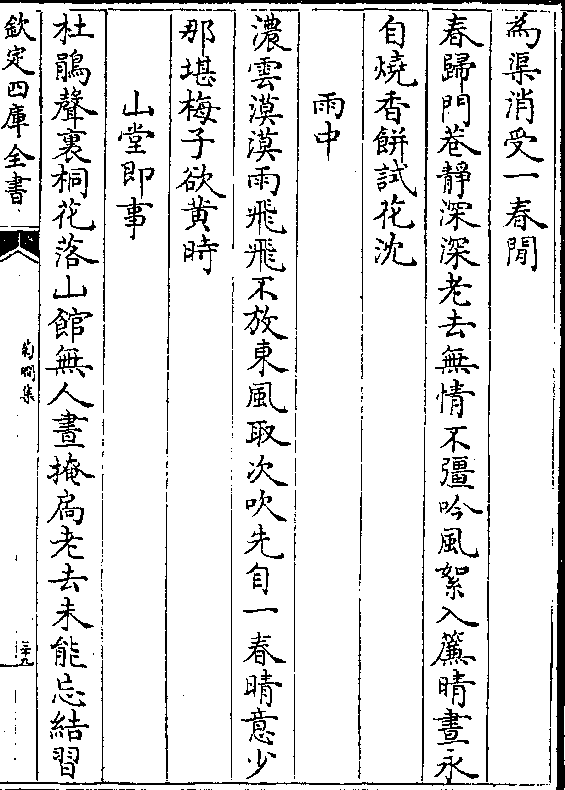 為渠消受一春閒
春歸門巷靜深深老去無情不彊吟風絮入簾晴晝永
自燒香餅試花沈
雨中
濃雲漠漠雨飛飛不放東風取次吹先自一春晴意少
那堪梅子欲黄時
山堂即事
杜鵑聲裏桐花落山館無人晝掩扃老去未能忘結習
欽定四庫全書
菊磵集
二十九